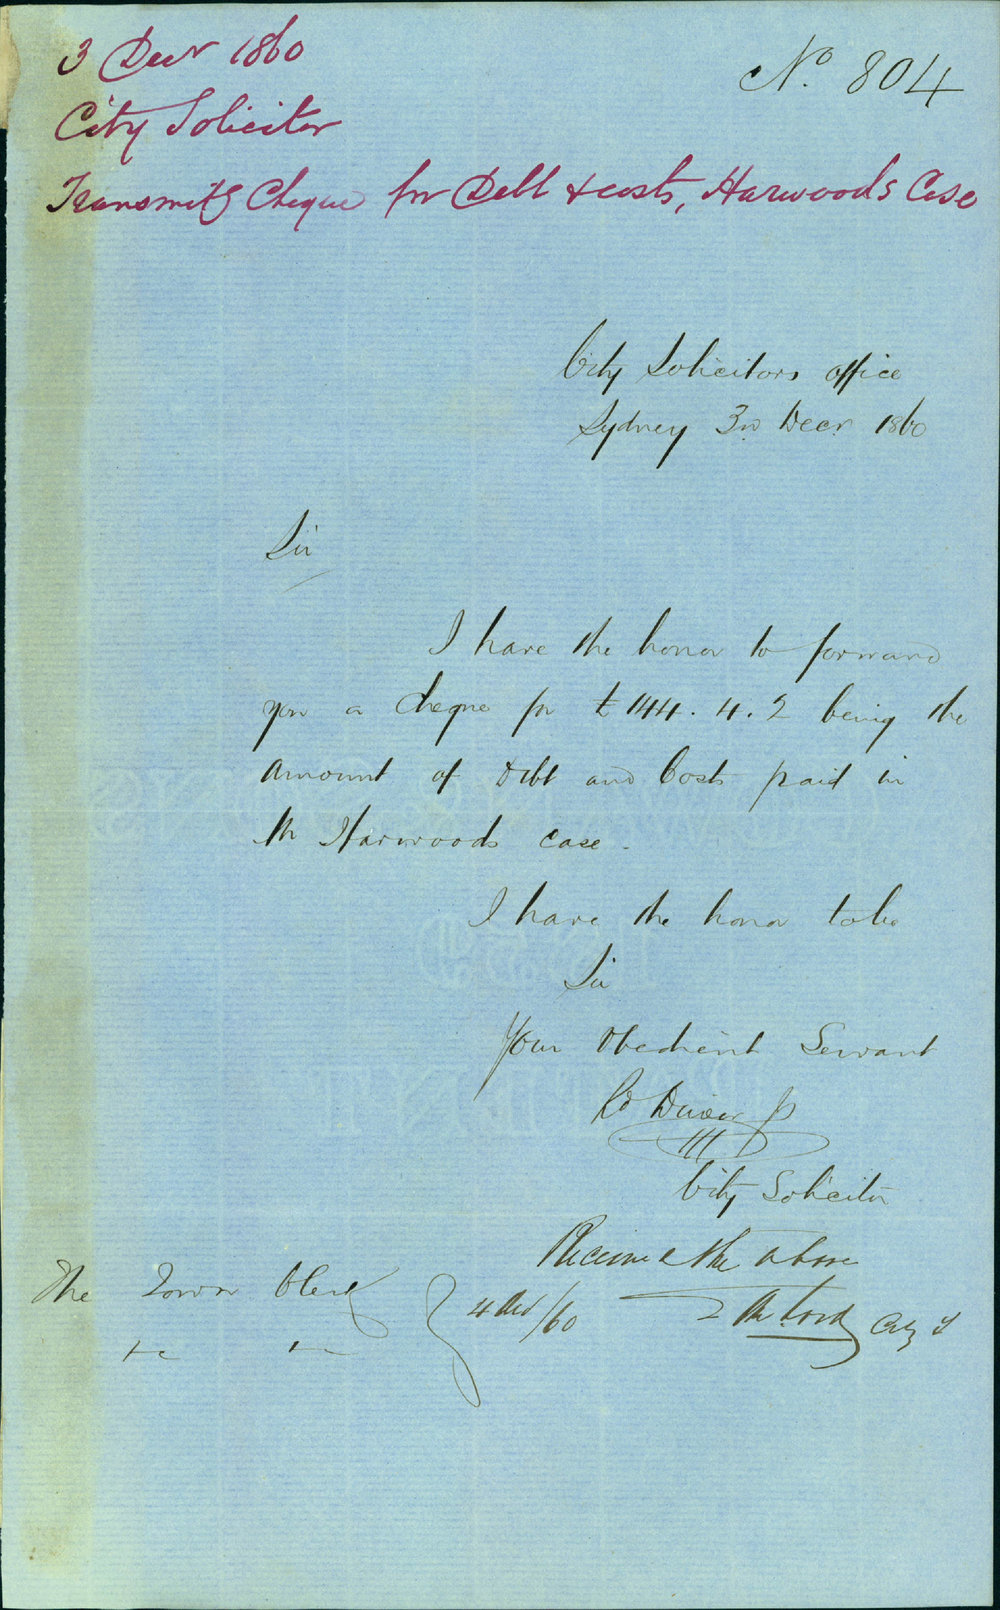 3 Decr 1860
No. 804
City Solicitor
Transmitg Cheque for Debt & costs, Harwoods Case
City Solicitors office
Sydney 3rd Decr. 1860
Sir
I have the honor to forward
you a cheque for £144. 4. 2 being the
amount of Debt and Costs paid in
Harwoods case.
I have the honor to be
Sir
Your Obedient Servant
Rd Driver Jr
City Solicitor
Received the above
The Town Clerk
4 Dec/60
City T